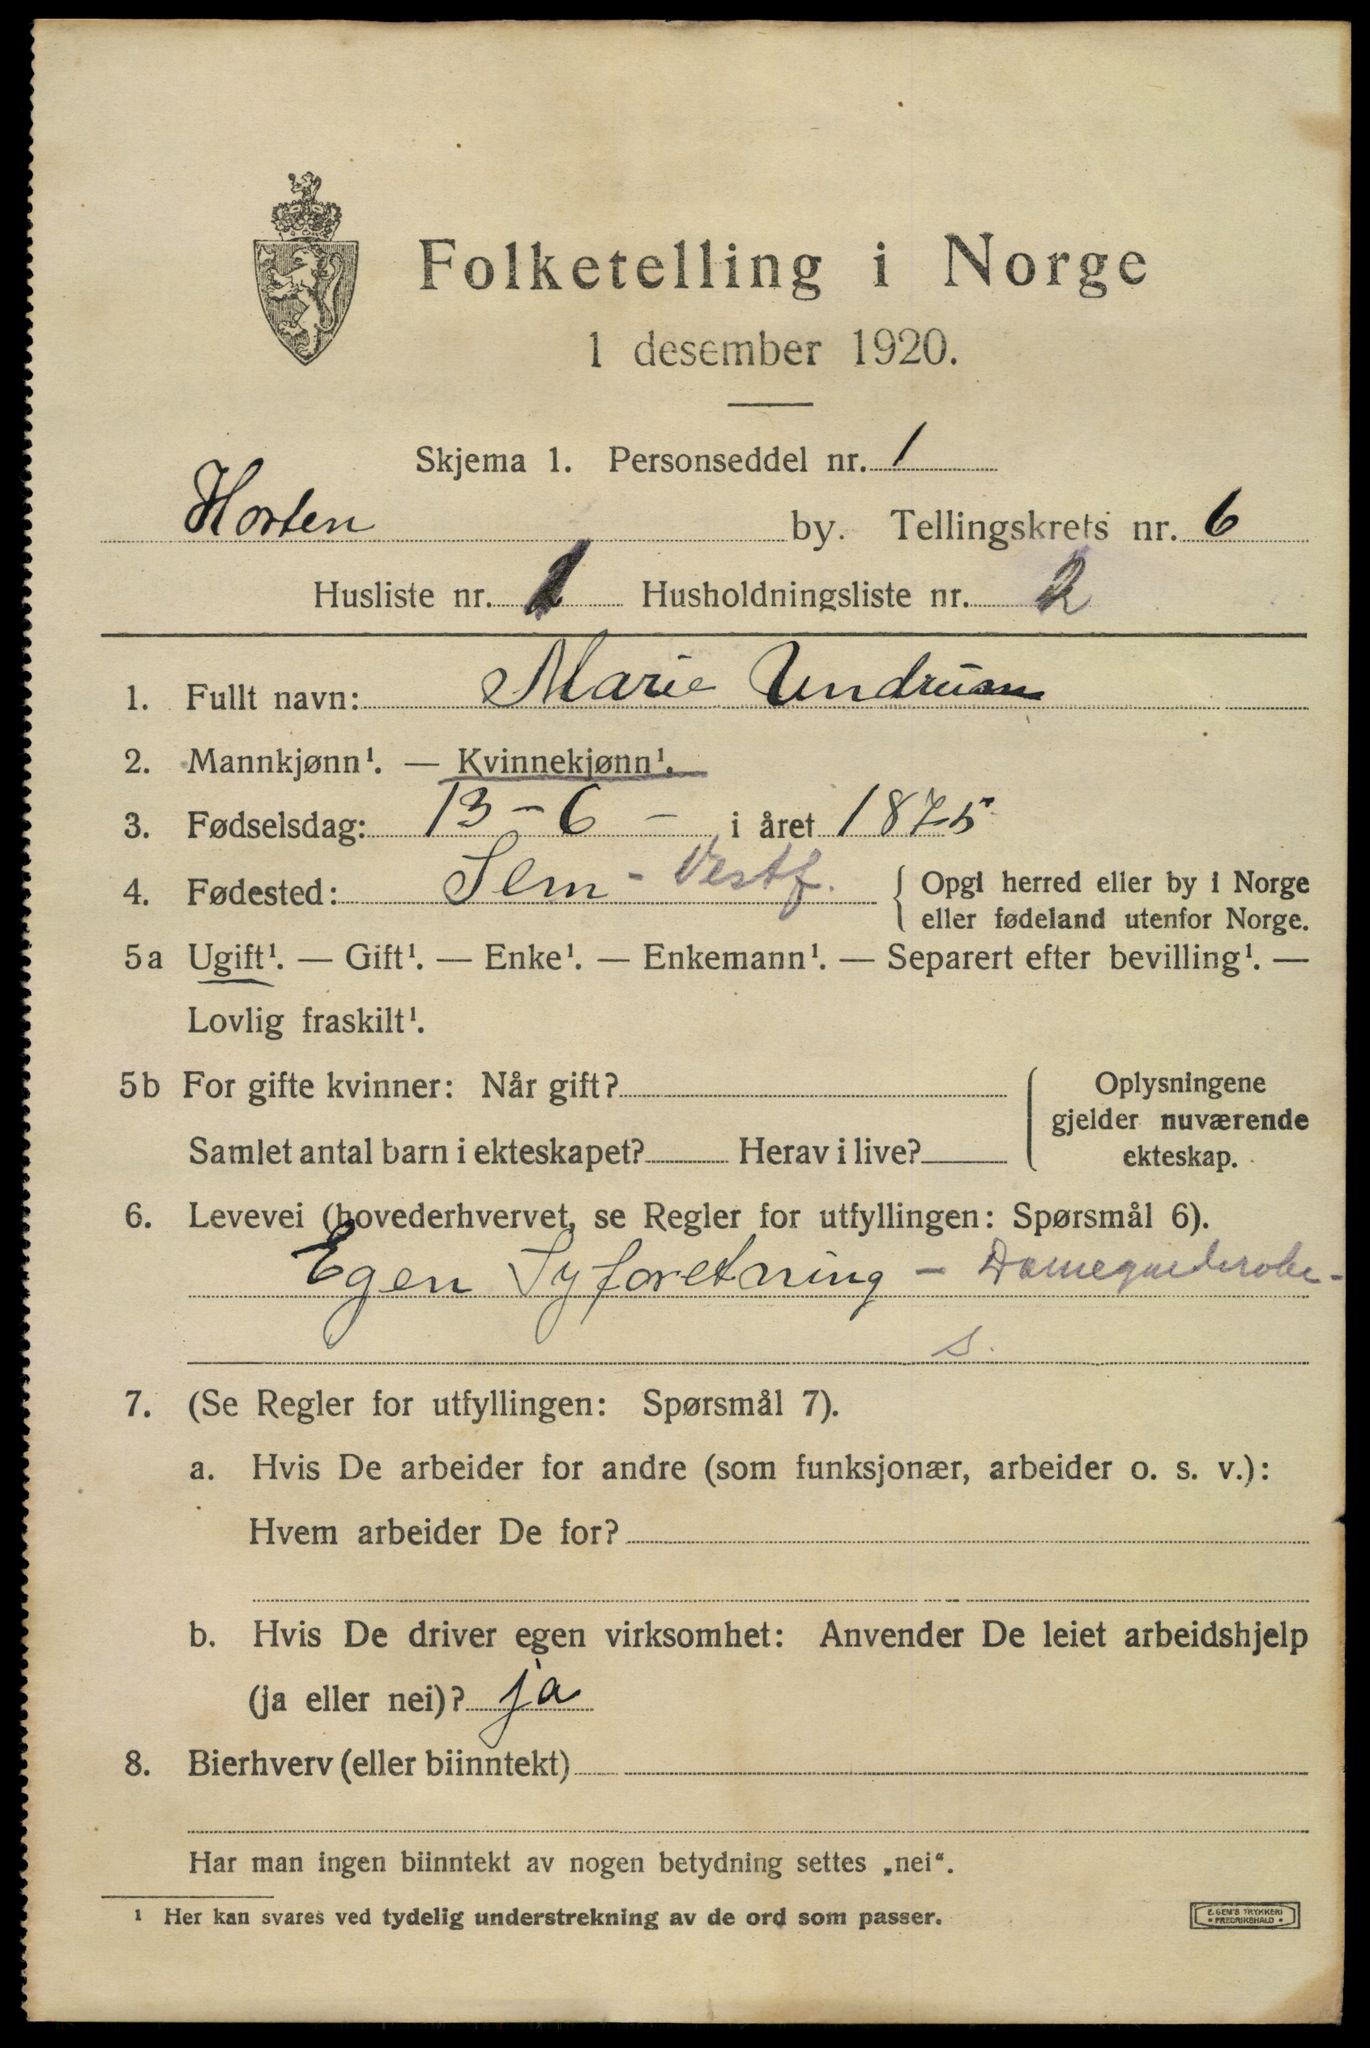 Folketelling i Norge
1 desember 1920.
Skjema 1. Personseddel nr. 1
Horten by. Tellingskrets nr. 6
Husliste nr. Husholdningsliste nr. 2
1. Fullt navn: Marie Undrum
2. Mannkjønn¹. — Kvinnekjønn¹.
3. Fødselsdag: 13 - 6 - i året 1875
4. Fødested: Sem - Vestf. { Opgi herred eller by i Norge
eller fødeland utenfor Norge.
5a Ugift¹. — Gift¹. — Enke¹. — Enkemann¹. — Separert efter bevilling¹. —
Lovlig fraskilt¹.
5b For gifte kvinner: Når gift? Oplysningene
gjelder nuværende
Samlet antal barn i ekteskapet? Herav i live? ekteskap.
6. Levevei (hovederhvervet, se Regler for utfyllingen: Spørsmål 6).
Egen Syforetning - Damegarderobe-
s.
7. (Se Regler for utfyllingen: Spørsmål 7).
a. Hvis De arbeider for andre (som funksjonær, arbeider o. s. v.):
Hvem arbeider De for?
b. Hvis De driver egen virksomhet: Anvender De leiet arbeidshjelp
(ja eller nei)? ja
8. Bierhverv (eller biinntekt)
Har man ingen biinntekt av nogen betydning settes „nei“.
¹ Her kan svares ved tydelig understrekning av de ord som passer.
E. SEM'S TRYKKERI
• FREDRIKSHALD •